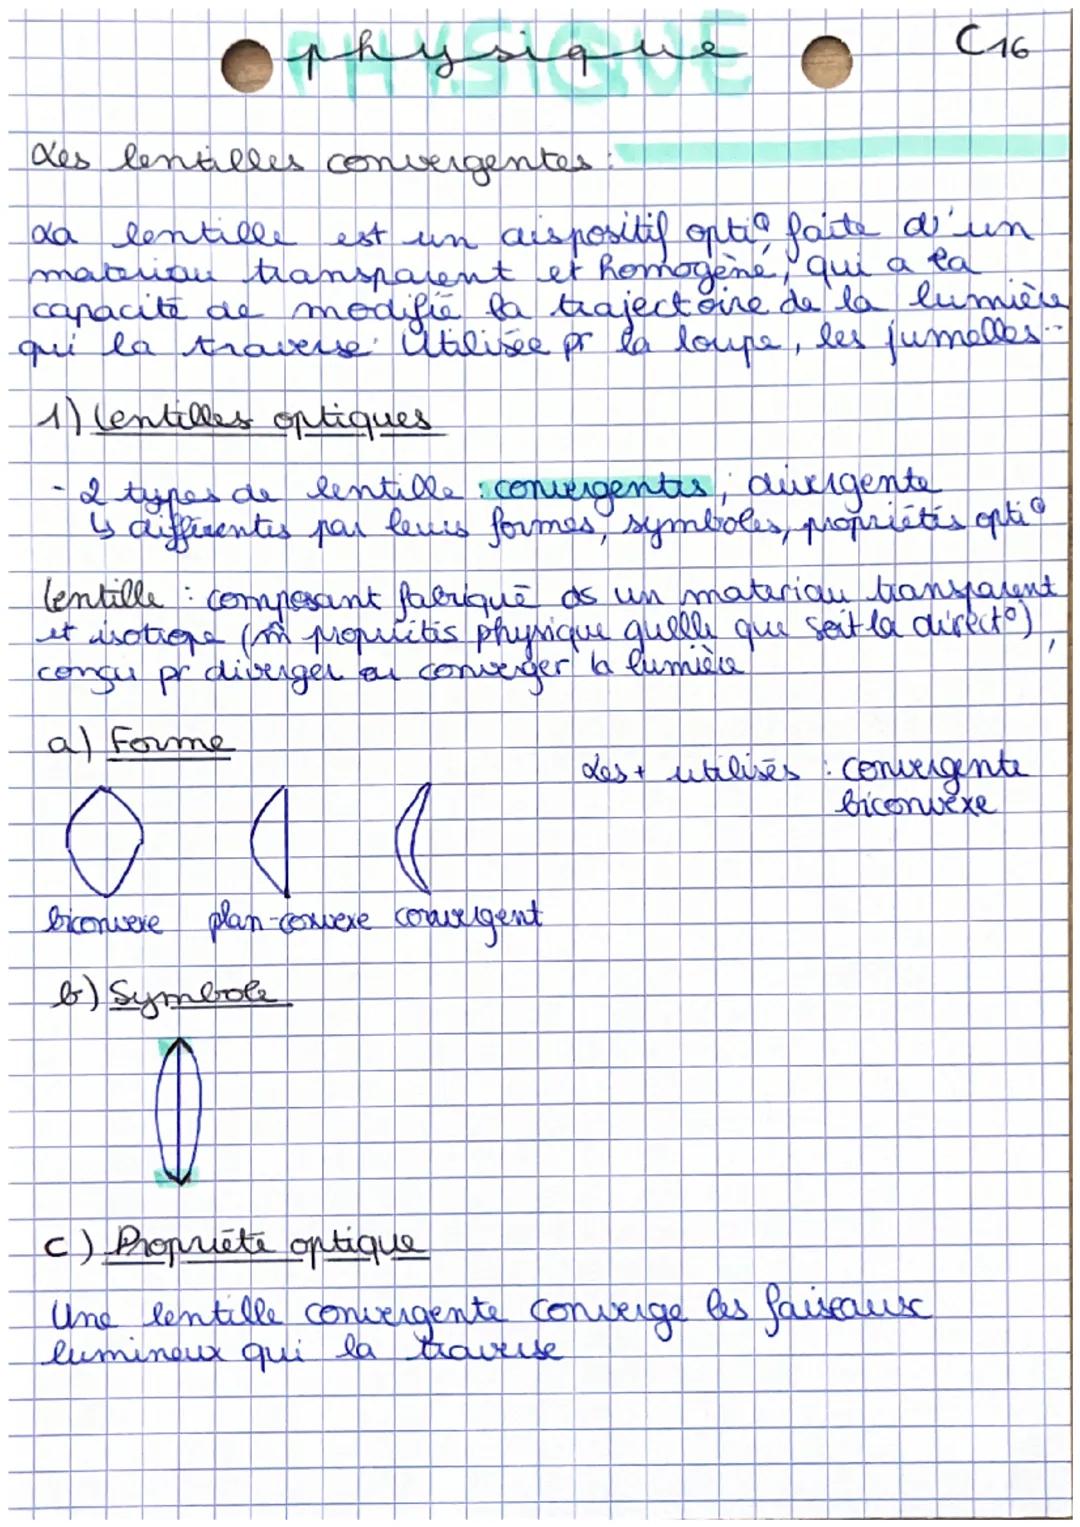 physique
PHYSIQUE
C16
Les lentilles convergentes :
La lentille est un dispositif opti° faite d'un
materiau transparent et homogène, qui a la
capacité de modifié la trajectoire de la lumière
qui la traverse. Utilisée pr la loupe, les jumelles...
1) Lentilles optiques
- 2 types de lentille : convergentes, divergente
↳ différentes par leurs formes, symboles, propriétés opti°
Lentille : composant fabriqué ds un materiau transparent
et isotrope (m̂ propriétés physique quelle que soit la direct°),
conçu pr diverger ou converger la lumière
a) Forme
Les + utilisés : convergente
biconvexe
biconvexe plan-convexe convergent
b) Symbole
c) Propriété optique
Une lentille convergente converge les faiseaux
lumineux qui la traverse